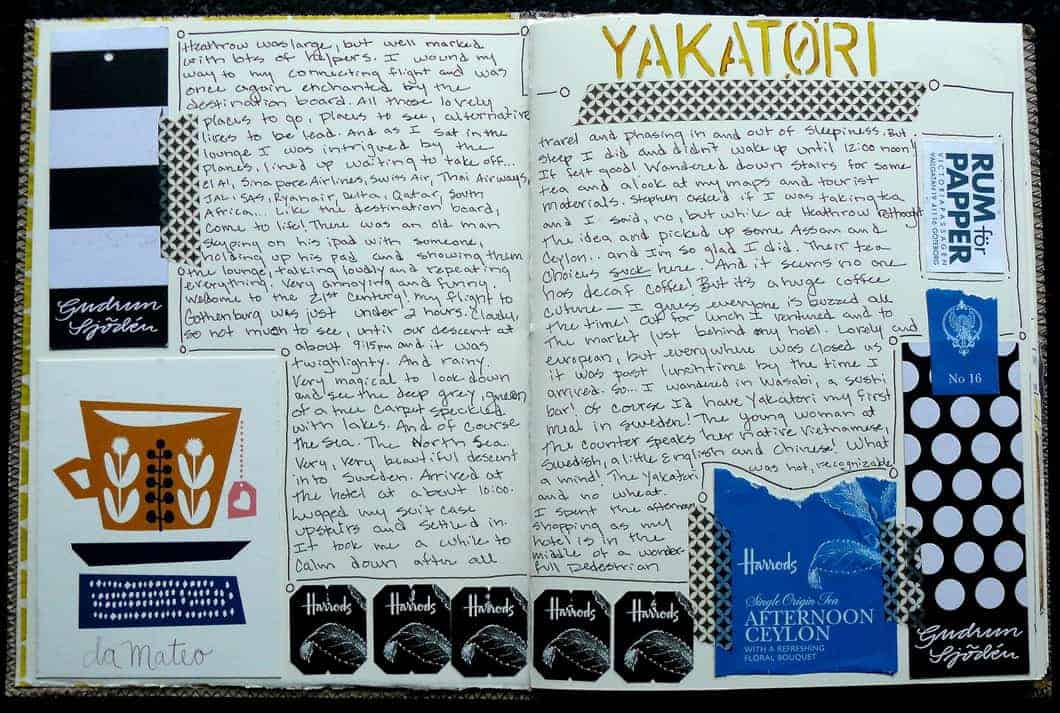 Heathrow was large, but well marked
with lots of helpers. I wound my
way to my connecting flight and was
once again enchanted by the
destination board. All those lovely
places to go, places to see, alternative
lives to be lead. And as I sat in the
lounge I was intrigued by the
planes, lined up waiting to take off...
el Al, Singapore Airlines, Swiss Air, Thai Airways,
JAL, SAS, Ryanair, Delta, Qatar, South
Africa... Like the destination board,
come to life! There was an old man
skyping on his ipad with someone,
holding up his pad and showing them
the lounge, talking loudly and repeating
everything. Very annoying and funny.
Welcome to the 21st Century! My flight to
Gothenburg was just under 2 hours. Cloudy,
so not much to see, until our descent at
about 9:15pm and it was
twighlighty. And rainy.
Very magical to look down
and see the deep grey, green
of a tree carpet speckled
with lakes. And of course
the sea. The North Sea.
Very, very beautiful descent
into Sweden. Arrived at
the hotel at about 10:00.
Lugged my suit case
upstairs and settled in.
It took me a while to
calm down after all
Gudrun
Sjödén
da Mateo
Harrods
Harrods
Harrods
YAKATORI
travel and phasing in and out of sleepiness. But
sleep I did and didn't wake up until 12:00 noon!
It felt good! Wandered down stairs for some
tea and a look at my maps and tourist
materials. Stephen asked if I was taking tea
and I said, no, but while at Heathrow rethought
the idea and picked up some Assam and
Ceylon.. and I'm so glad I did. Their tea
choices suck here. And it seems no one
has decaf coffee! But its a huge coffee
culture — I guess everyone is buzzed all
the time! Out for lunch I ventured and to
the market just behind my hotel. Lovely and
european, but everywhere was closed as
it was past lunchtime by the time I
arrived. So... I wandered in Wasabi, a sushi
bar! Of course I'd have Yakatori my first
meal in Sweden! The young woman at
the counter speaks her native Vietnamese,
Swedish, a little English and Chinese! What
a mind! The Yakatori was hot, recognizable
and no wheat.
I spent the afternoon
shopping as my
hotel is in the
middle of a wonder-
full pedestrian
Harrods
Harrods
RUM för
PAPPER
VICTORIAPASSAGEN
VALLGATAN 19 41116 GÖTEBORG
No 16
Harrods
Single Origin Tea
AFTERNOON
CEYLON
WITH A REFRESHING
FLORAL BOUQUET
Gudrun
Sjödén